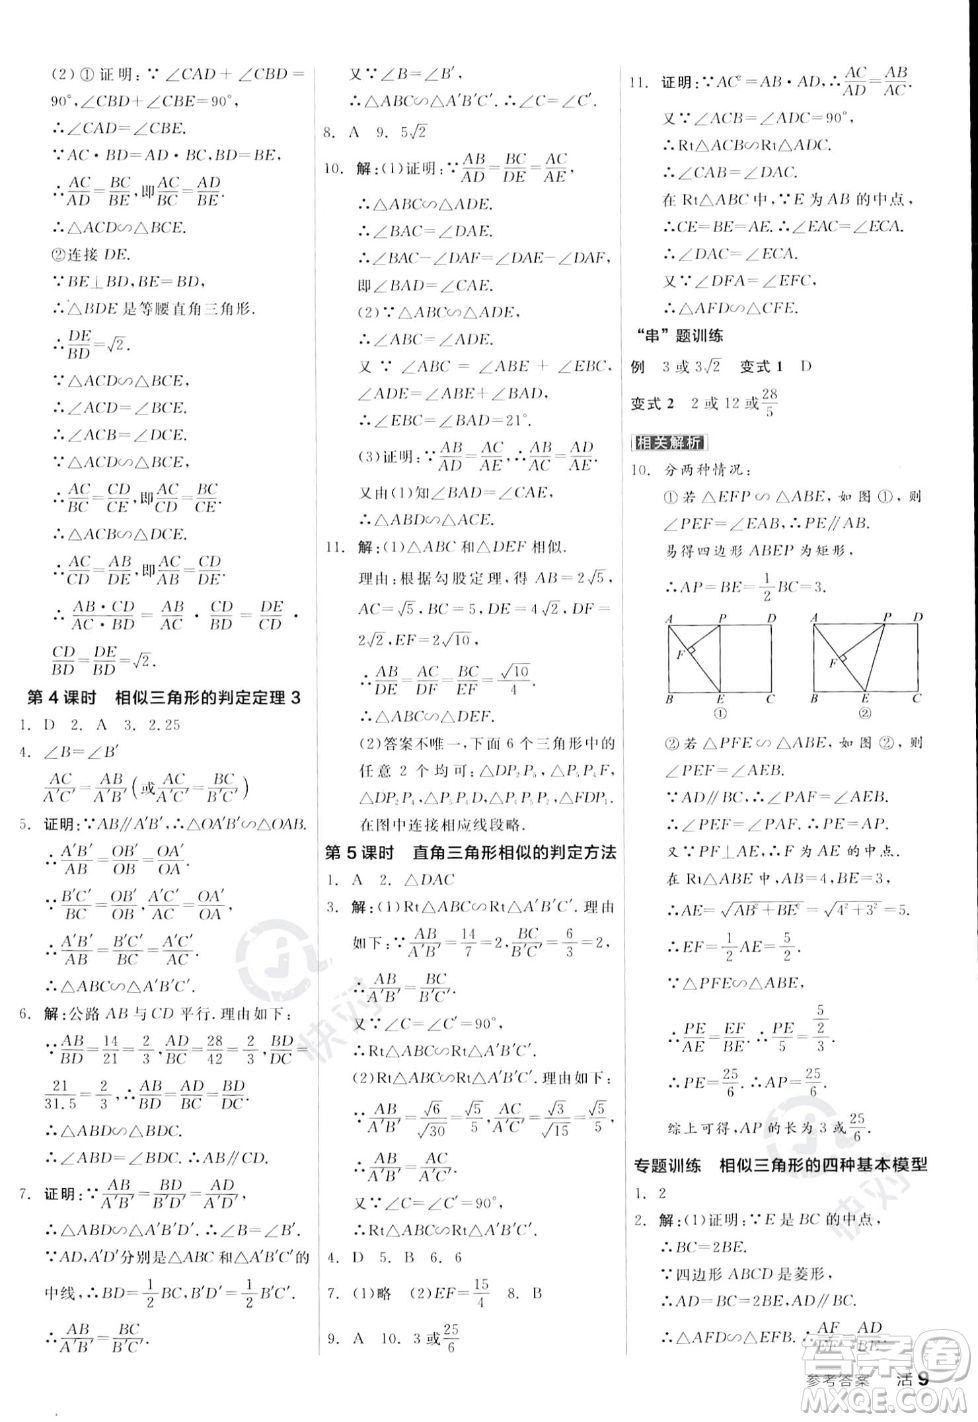 (2) ①证明:∵∠CAD+∠CBD=
90°,∠CBD+∠CBE=90°,
∴∠CAD=∠CBE.
∵AC·BD=AD·BE,
∴AC/AD=BC/BE,即AC/BC=AD/BE.
∴△ACD∽△BCE.
②连接 DE.
∵BE⊥BD,BE=BD,
∴△BDE 是等腰直角三角形.
∴DE/BD=√2.
∵△ACD∽△BCE,
∴∠ACD=∠BCE.
∴∠ACB=∠DCE.
∴AC/BC=CD/CE,即AC/CD=BC/CE.
∴△ACB∽△DCE.
∴AC/CD=AB/DE,即AC/AB=CD/DE.
∴AB·CD/AC·BD=AB/AC·CD/BD=DE/CD·
CD/BD=DE/BD=√2.
第 4 课时 相似三角形的判定定理 3
1. D 2. A 3. 2.25
4. ∠B=∠B′
AC/A′C′=AB/A′B′(或AC/A′C′=BC/B′C′)
5. 证明:∵AB∥A′B′,∴△OA′B′∽△OAB.
∴A′B′/AB=OB′/OB=OA′/OA.
∴A′B′/AB=B′C′/BC=A′C′/AC.
∴△ABC∽△A′B′C′.
6. 解:公路 AB 与 CD 平行.理由如下:
∵AB/BD=14/21=2/3,AD/BC=28/42=2/3,BD/DC=
21/31.5=2/3,∴AB/BD=AD/BC=BD/DC.
∴△ABD∽△BDC.
∴∠ABD=∠BDC.∴AB∥DC.
7. 证明:∵AB/A′B′=BD/B′D′=AD/A′D′,
∴△ABD∽△A′B′D′.∴∠B=∠B′.
∵AD,A′D′分别是△ABC 和△A′B′C′的
中线,∴BD=1/2BC,B′D′=1/2B′C′.
∴AB/A′B′=BC/B′C′.
又∵∠B=∠B′,
∴△ABC∽△A′B′C′.
8. A 9. 5√2
10. 解:(1)证明:∵AB/AD=BC/DE=AC/AE,
∴△ABC∽△ADE.
∴∠BAC=∠DAE.
∴∠BAC-∠DAF=∠DAE-∠DAF,
即∠BAD=∠CAE.
(2)∵△ABC∽△ADE,
∴∠ABC=∠ADE.
又 ∵ ∠ABC = ∠ABE + ∠EBC,
∠ADE=∠ABE+∠BAD,
∴∠EBC=∠BAD=21°.
(3)证明:∵AB/AD=AC/AE,∴AB/AC=AD/AE.
又由(1)知∠BAD=∠CAE,
∴△ABD∽△ACE.
11. 解:(1)△ABC 和△DEF 相似.
理由:根据勾股定理,得 AB=2√5,
AC=√5,BC=5,DE=4√2,DF=
2√2,EF=2√10,
∴AB/DE=AC/DF=BC/EF=√10/4.
∴△ABC∽△DEF.
(2)答案不唯一,下面 6 个三角形中的
任意 2 个均可:△DP₂P₅,△P₅P₄F,
△DP₂P₄,△P₅P₄D,△P₄P₅P₂,△FDP₁.
在图中连接相应线段略.
第 5 课时 直角三角形相似的判定方法
1. A 2. △DAC
3. 解:(1)Rt△ABC∽Rt△A′B′C′.理由
如下:∵AB/A′B′=14/7=2,BC/B′C′=6/3=2,
∴AB/A′B′=BC/B′C′.
又∵∠C=∠C′=90°,
∴Rt△ABC∽Rt△A′B′C′.
(2)Rt△ABC∽Rt△A′B′C′.理由如下:
∵AB/A′B′=√6/√30=√5/5,AC/A′C′=√3/√15=√5/5,
∴AB/A′B′=AC/A′C′.
又∵∠C=∠C′=90°,
∴Rt△ABC∽Rt△A′B′C′.
4. D 5. B 6. 6
7. (1)略 (2)EF=15/4 8. B
9. A 10. 3 或25/6
11. 证明:∵AC²=AB·AD,∴AC/AD=AB/AC.
又∵∠ACB=∠ADC=90°,
∴Rt△ACB∽Rt△ADC.
∴∠CAB=∠DAC.
在 Rt△ABC 中,∵E 为 AB 的中点,
∴CE=BE=AE.∴∠EAC=∠ECA.
∴∠DAC=∠ECA.
又∵∠DFA=∠EFC,
∴△AFD∽△CFE.
“串”题训练
例 3 或 3√2 变式 1 D
变式 2 2 或 12 或28/5
相关解析
10. 分两种情况:
①若 △EFP∽△ABE,如图①,则
∠PEF=∠EAB,∴PE∥AB.
易得四边形 ABEP 为矩形,
∴AP=BE=1/2BC=3.
A P D F B E C ①
A P D F B E C ②
②若 △PFE∽△ABE,如图②,则
∠PEF=∠AEB.
∵AD∥BC,∴∠PAF=∠AEB.
∴∠PEF=∠PAF.∴PE=PA.
又∵PF⊥AE,∴F 为 AE 的中点.
∵AE=√AB²+BE²=√4²+3²=5,
∴EF=1/2AE=5/2.
∵△PFE∽△ABE,
∴PE/AE=EF/BE,即PE/5=5/2/3.
∴PE=25/6.∴AP=25/6.
综上可得,AP 的长为 3 或25/6.
专题训练 相似三角形的四种基本模型
1. 2
2. 解:(1)证明:∵E 是 BC 的中点,
∴BC=2BE.
∵四边形 ABCD 是菱形,
∴AD=BC=2BE,AD∥BC.
∴△AFD∽△EFB.∴AF/EF=AD/EB.
参考答案 活 9
快对
快对
答案圈
MXQE.COM